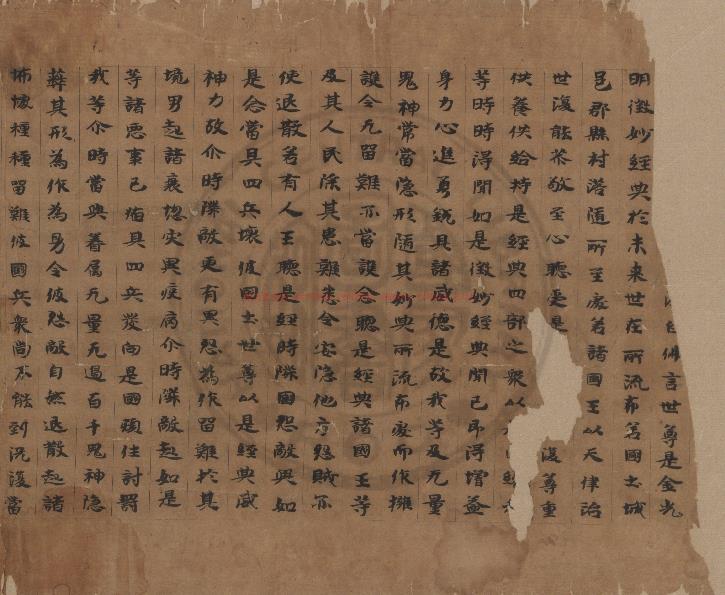 白佛言世尊是金光
明微妙經典於未來世在所流布若國土城
邑郡縣村落隨所至處若諸國王以天律治
世復能恭敬至心聽受是 復尊重
供養供給持是經典四部之眾以
等時時得聞如是微妙經典聞已即得增益
身力心進勇銳具諸威德是故我等及无量
鬼神常當隱形隨其妙典所流布處而作擁
護令无留難亦當護念聽是經典諸國王等
及其人民除其患難悉令安隱他方怨賊亦
使退散若有人王聽是經時隣國怨敵興如
是念當具四兵壞彼國土世尊以是經典威
神力故尒時隣敵更有異怨為作留難於其
境界起諸衰惱灾異疫病尒時隣敵起如是
等諸惡事已俻具四兵發向是國頋往討罸
我等尒時當與眷属无量无邊百千鬼神隱
蔽其形為作為易令彼怨敵自然退散起諸
怖懅種種留難彼國兵衆尚不能到況復當